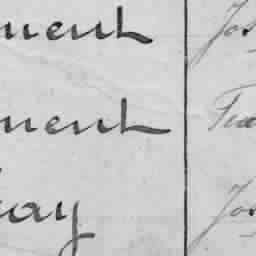 ment Jos
ment
ay Jos